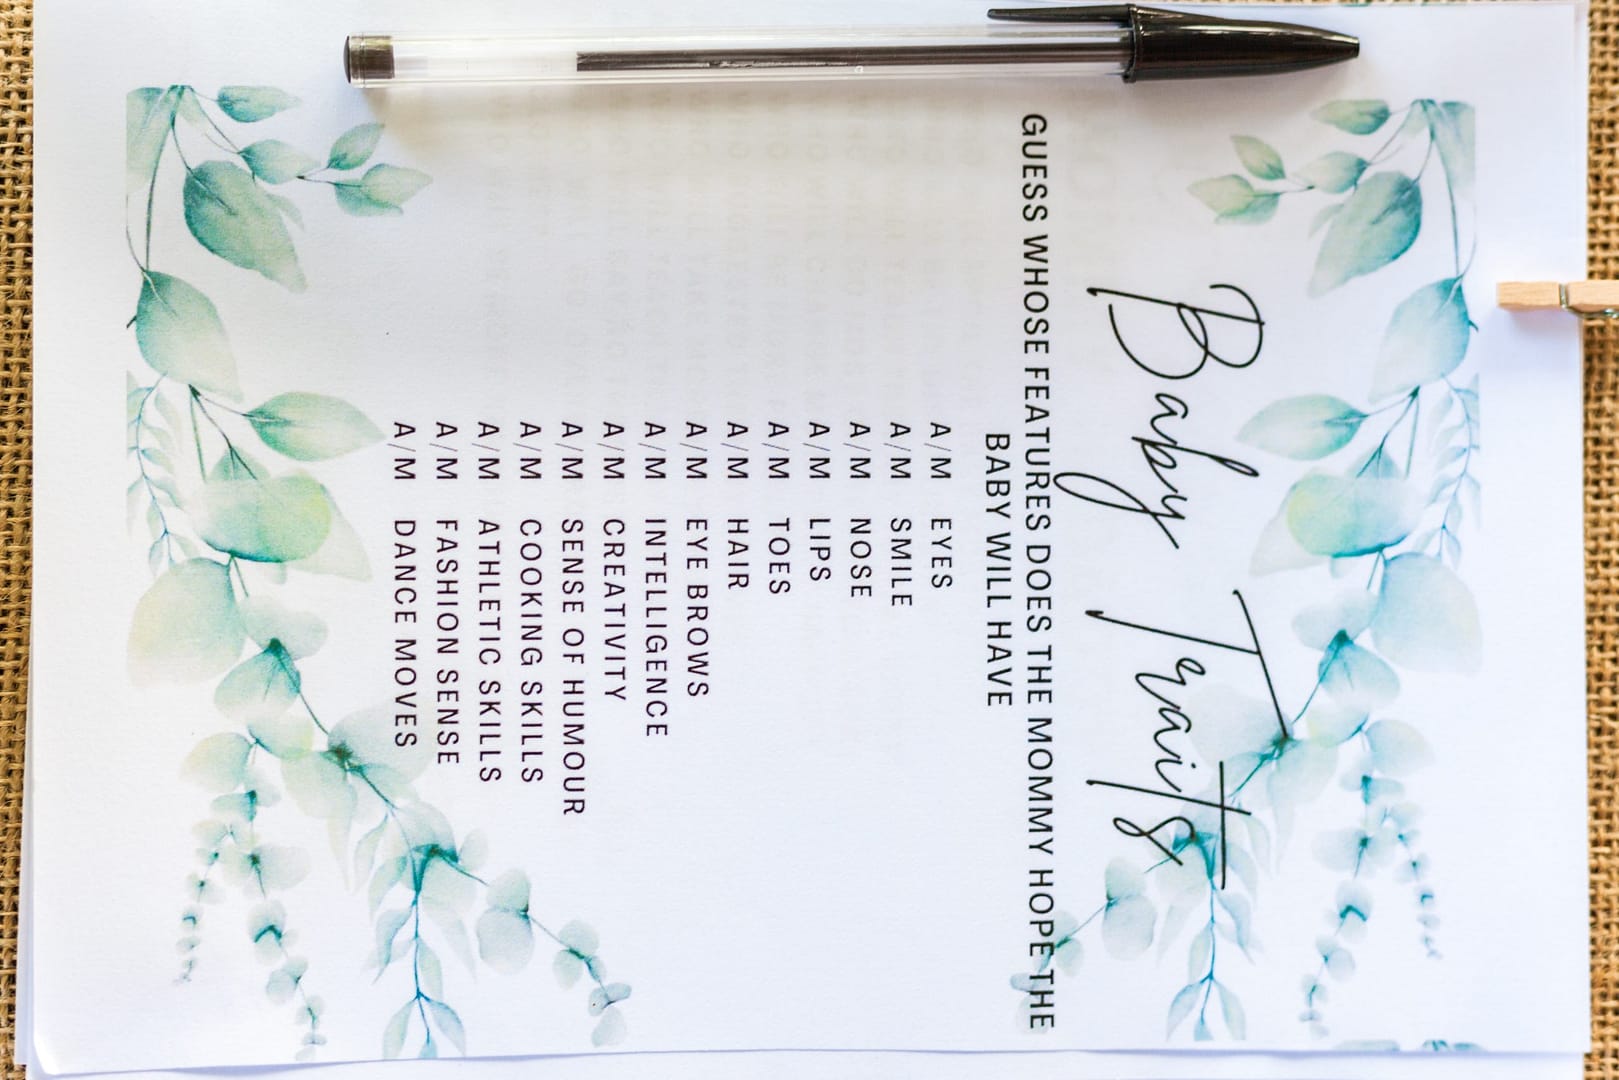 Baby Traits
GUESS WHOSE FEATURES DOES THE MOMMY HOPE THE
BABY WILL HAVE
A/M EYES
A/M SMILE
A/M NOSE
A/M LIPS
A/M TOES
A/M HAIR
A/M EYE BROWS
A/M INTELLIGENCE
A/M CREATIVITY
A/M SENSE OF HUMOUR
A/M COOKING SKILLS
A/M ATHLETIC SKILLS
A/M FASHION SENSE
A/M DANCE MOVES